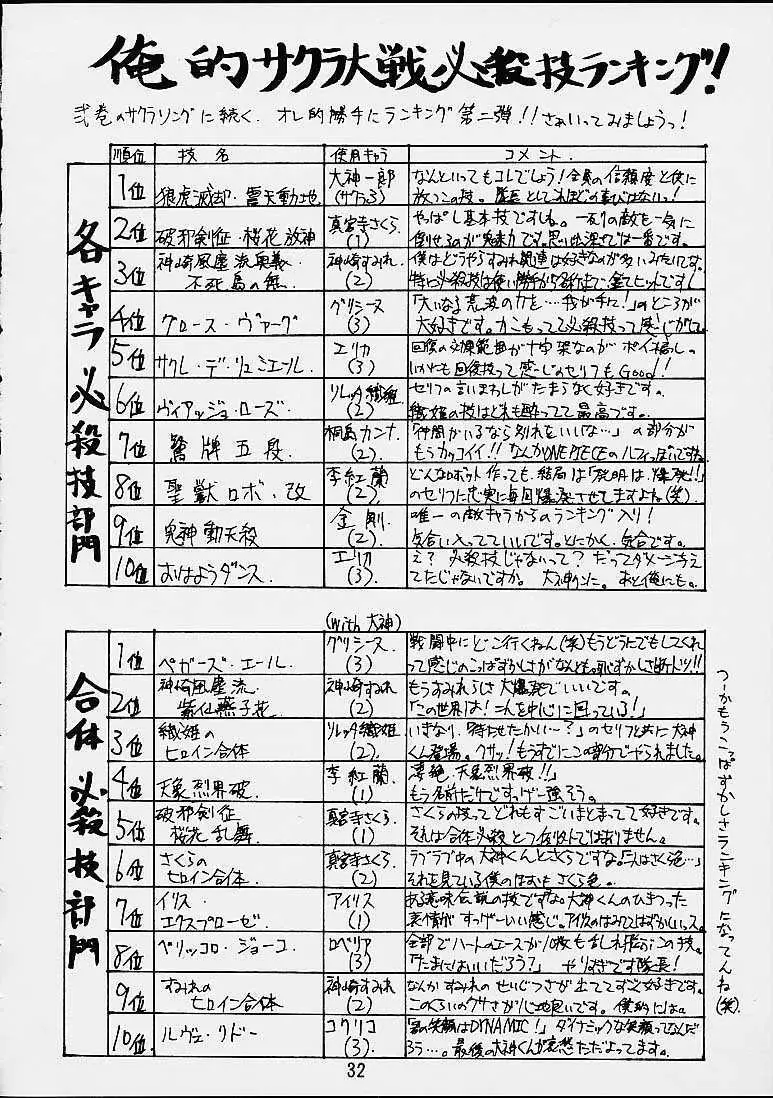 俺的サクラ大戦必殺技ランキング!
弐巻のサクラソングに続く、オレ的勝手にランキング第二弾!!さぁいってみましょうっ!
各キャラ必殺技部門
順位 技名 使用キャラ コメント.
1位 狼虎滅却・震天動地 大神一郎
なんといってもコレでしょう!全員の信頼度と供に
放つこの技。隊長としてこれほどの喜びはないっ!
2位 破邪剣征・桜花放神 真宮寺さくら(1)
やっぱし基本技ですしね。一列の敵も一気に
倒せるのが魅力です。思い出深さでは一番です。
3位 神崎風塵流奥義・不死鳥の舞 神崎すみれ(2)
僕はどうやらすみれ関連は好きなのが多いみたいです。
特に必殺技は使い勝手から名前まで全てヒットです!
4位 グロース・ヴァーグ グリシーヌ(3)
「大いなる荒波の力を…我が手に!」のところが
大好きです。力こもってて必殺技って感じがして。
5位 サクレ・デ・リュミエール エリカ(3)
回復の効果範囲が十字架なのがポイント高しの
いかにも回復技って感じのセリフもGood!
6位 ヴィアッジョ・ローズ ソレッタ織姫(2)
セリフの言いまわしがたまらなく好きです。
織姫の技はどれも酔ってて最高です。
7位 鷺牌五段 桐島カンナ(2)
「仲間がいるなら別れをいいな…」の部分が
もうカッコイイ!!なんかONE PIECEのルフィっぽいですね。
8位 聖獣ロボ・改 李紅蘭(2)
どんなロボット作っても、結局は「発明は爆発!!」
のセリフに忠実に毎回爆発させてますよね(笑)
9位 鬼神動天殺 金剛(2)
唯一の敵キャラからのランキング入り!
気合い入ってていいです。とにかく、気合です。
10位 おはようダンス エリカ(3).
え?必殺技じゃないって?だってダメージ与え
てたじゃないですか。大神くんに。あと俺にも。
合体必殺技部門
(with 大神)
1位 ペガーズ・エール. グリシーヌ(3)
戦闘中にどこ行くねん(笑)もうどうにでもしてくれ
って感じのこっぱずかしさがなんとも。恥ずかしさ断トツ!!
2位 神崎風塵流 紫仙燕子花 神崎すみれ(2)
もうすみれらしさ大爆発でいいです。
「この世界は!二人を中心に回っている!」
3位 織姫のヒロイン合体 ソレッタ織姫(2)
いきなり「待たせたかい〜?」のセリフと共に大神
くん登場。クサッ!もうすでにこの部分でやられました。
4位 天象烈界破. 李紅蘭(1)
「凄絶・天象烈界破!!」
もう名前だけですっげー強そう。
5位 破邪剣征 桜花乱舞 真宮寺さくら(1)
さくらの技ってどれもすごいまとまってて好きです。
それは合体必殺とて例外ではありません。
6位 さくらのヒロイン合体. 真宮寺さくら(2)
ラブラブ中の大神くんとさくらですな。「二人はさくら色…」
それを見ている僕のほおもさくら色。
7位 イリス・エクスプローゼ アイリス(1)
ある意味伝説の技ですな。大神くんのひきつった
表情がすっげーいい感じ。アイリスのはみててはずかしいっス。
8位 ベリッコロ・ジョーコ. ロベリア(3)
全部でハートのエースが10枚もまじってたこの技。
「たまにはいいだろう?」 やりすぎです隊長!
9位 すみれのヒロイン合体 神崎すみれ(2)
なんかすみれのせいじつさが出ててスゴと好きです。
このくらいのクサさが心地良いです。僕的には。
10位 ルヴェ・リドー コクリコ(3).
「君の笑顔はDYNAMIC!」ダイナミックな笑顔ってなんだ
ろう…。最後の大神くんが哀愁ただよってます。
つーかもうこっぱずかしさランキングになってんね(笑)
32